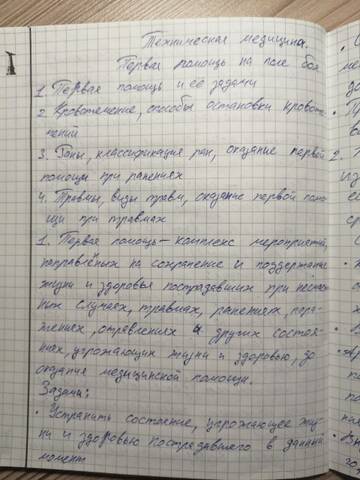 Техническая медицина.
Первая помощь на поле боя
1. Первая помощь и её задачи
2. Кровотечение, способы остановки кровоте-
чений
3. Раны, классификация ран, оказание первой
помощи при ранениях
4. Травмы, виды травм, оказание первой помо-
щи при травмах
1. Первая помощь - комплекс мероприятий,
направленных на сохранение и поддержание
жизни и здоровья пострадавших при несчаст-
ных случаях, травмах, ранениях, пора-
жениях, отравлениях и других состоя-
ниях, угрожающих жизни и здоровью, до
оказания медицинской помощи.
Задачи:
• Устранить состояние, угрожающее жиз-
ни и здоровью пострадавшего в данный
момент